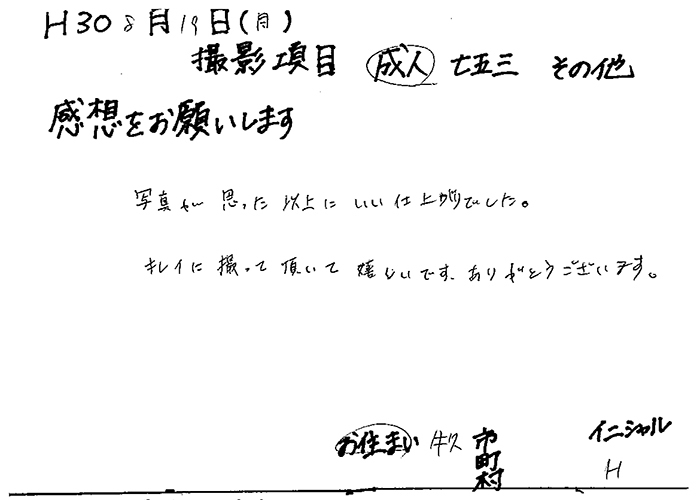 H30 8月19日(月)
撮影項目 成人 七五三 その他
感想をお願いします
写真が思った以上にいい仕上がりでした。
キレイに撮って頂いて嬉しいです、ありがとうございます。
お住まい 牛久 市町村 イニシャル
H